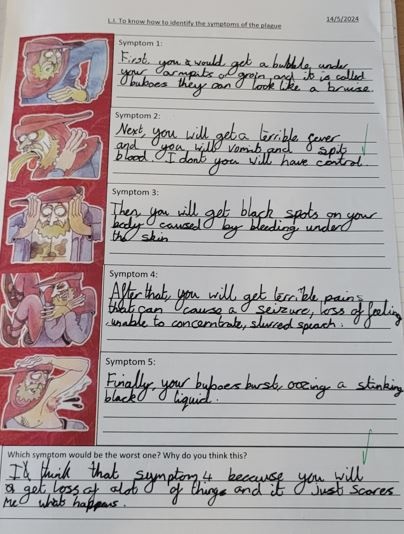 L.I. To know how to identify the symptoms of the plague
14/5/2024
Symptom 1:
First, you would get a bubble, under
your armpits or groin and it is called
buboes they can look like a bruise.
Symptom 2:
Next, you will get a terrible fever
and you will vomit and spit
blood. I dont you will have control.
Symptom 3:
Then, you will get black spots on your
body caused by bleeding under
the skin
Symptom 4:
After that, you will get terrible pains
that can cause a seizure, loss of feeling
unable to concentrate, slurred speach.
Symptom 5:
Finally, your buboes burst, oozing a stinking
black liquid.
Which symptom would be the worst one? Why do you think this?
I think that symptom 4 because you will
get loss of alot of things and it just scares
me what happens.